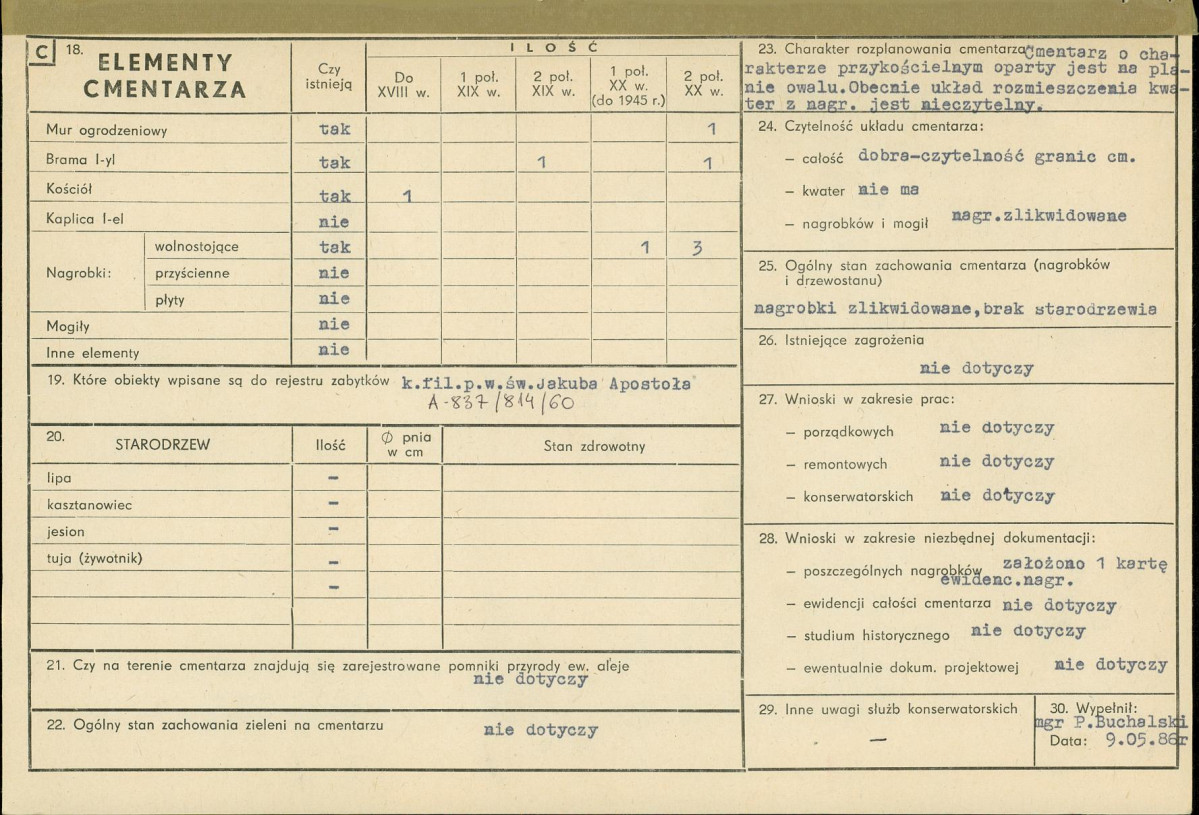 C 18. ELEMENTY
CMENTARZA
Czy
istnieją
ILOŚĆ
Do
XVIII w.
1 poł.
XIX w.
2 poł.
XIX w.
1 poł.
XX w.
(do 1945 r.)
2 poł.
XX w.
Mur ogrodzeniowy tak 1
Brama I-yl tak 1 1
Kościół tak 1
Kaplica I-el nie
Nagrobki:
wolnostojące tak 1 3
przyścienne nie
płyty nie
Mogiły nie
Inne elementy nie
19. Które obiekty wpisane są do rejestru zabytków k.fil.p.w.św.Jakuba Apostoła
A-837/814/60
20. STARODRZEW Ilość Ø pnia
w cm Stan zdrowotny
lipa –
kasztanowiec –
jesion –
tuja (żywotnik) –
–
21. Czy na terenie cmentarza znajdują się zarejestrowane pomniki przyrody ew. aleje
nie dotyczy
22. Ogólny stan zachowania zieleni na cmentarzu nie dotyczy
23. Charakter rozplanowania cmentarza Cmentarz o cha-
rakterze przykościelnym oparty jest na pla-
nie owalu.Obecnie układ rozmieszczenia kwa-
ter z nagr. jest nieczytelny.
24. Czytelność układu cmentarza:
– całość dobra-czytelność granic cm.
– kwater nie ma
– nagrobków i mogił nagr.zlikwidowane
25. Ogólny stan zachowania cmentarza (nagrobków
i drzewostanu)
nagrobki zlikwidowane,brak starodrzewia
26. Istniejące zagrożenia
nie dotyczy
27. Wnioski w zakresie prac:
– porządkowych nie dotyczy
– remontowych nie dotyczy
– konserwatorskich nie dotyczy
28. Wnioski w zakresie niezbędnej dokumentacji:
– poszczególnych nagrobków założono 1 kartę
ewidenc.nagr.
– ewidencji całości cmentarza nie dotyczy
– studium historycznego nie dotyczy
– ewentualnie dokum. projektowej nie dotyczy
29. Inne uwagi służb konserwatorskich
–
30. Wypełnił:
mgr P.Buchalski
Data: 9.05.86r